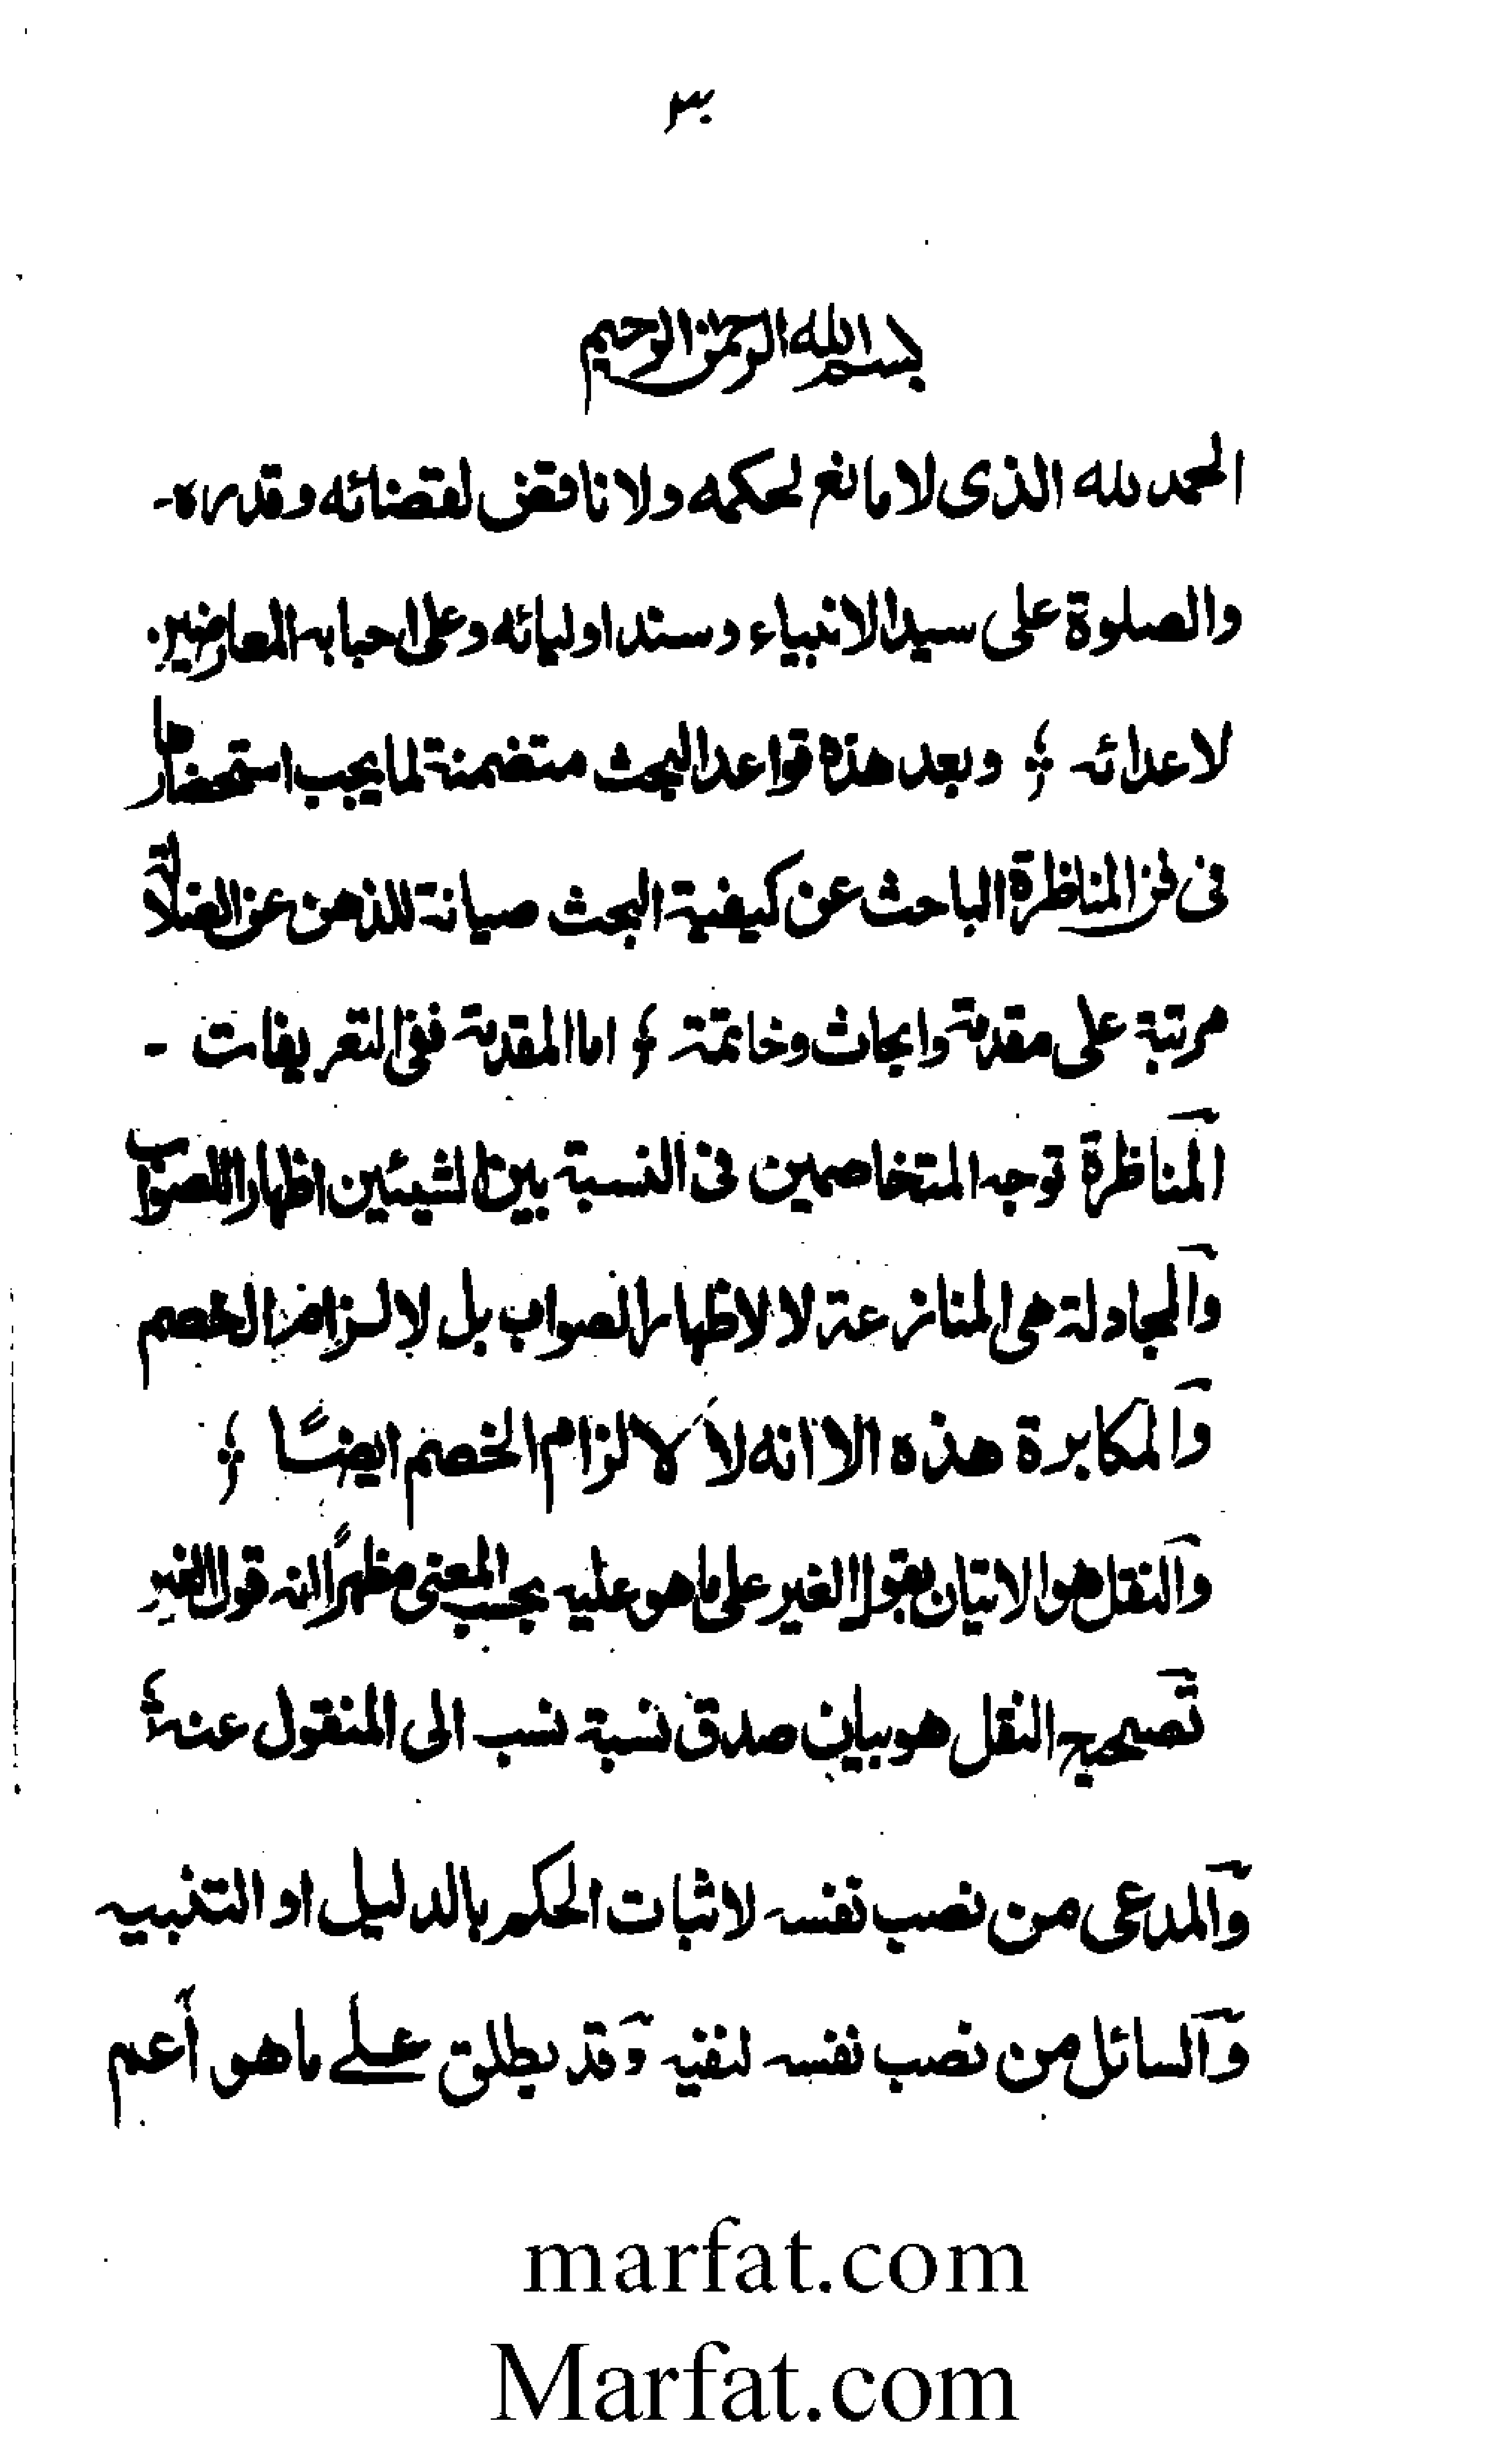 ٣
بسم الله الرحمن الرحيم
الحمد لله الذى لا مانع لحكمه ولا ناقض لقضائه وقدره-
والصلوة على سيد الانبياء وسند اوليائه وعلى احبابه المعارضين
لاعدائه ؛ وبعد هذه قواعد البحث متضمنة لما يجب استحضارها
فى فن المناظرة الباحث عن كيفية البحث صيانة للذهن عن الضلالة
مرتبة على مقدمة وابحاث وخاتمة ؛ اما المقدمة ففى التعريفات -
المناظرة توجه المتخاصمين فى النسبة بين الشيئين اظهارا للصواب
والمجادلة هى المنازعة لا لاظهار الصواب بل لالزام الخصم
والمكابرة هذه الا انه لا لالزام الخصم ايضًا ؛
والنقل هو الاتيان بقول الغير على ما هو عليه بحسب المعنى مظهرًا انه قول الغير
تصحيح النقل هو بيان صدق نسبة نسب الى المنقول عنه ؛
والمدعى من نصب نفسه لاثبات الحكم بالدليل او التنبيه
والسائل من نصب نفسه لنفيه وقد يطلق على ما هو أعم
marfat.com
Marfat.com